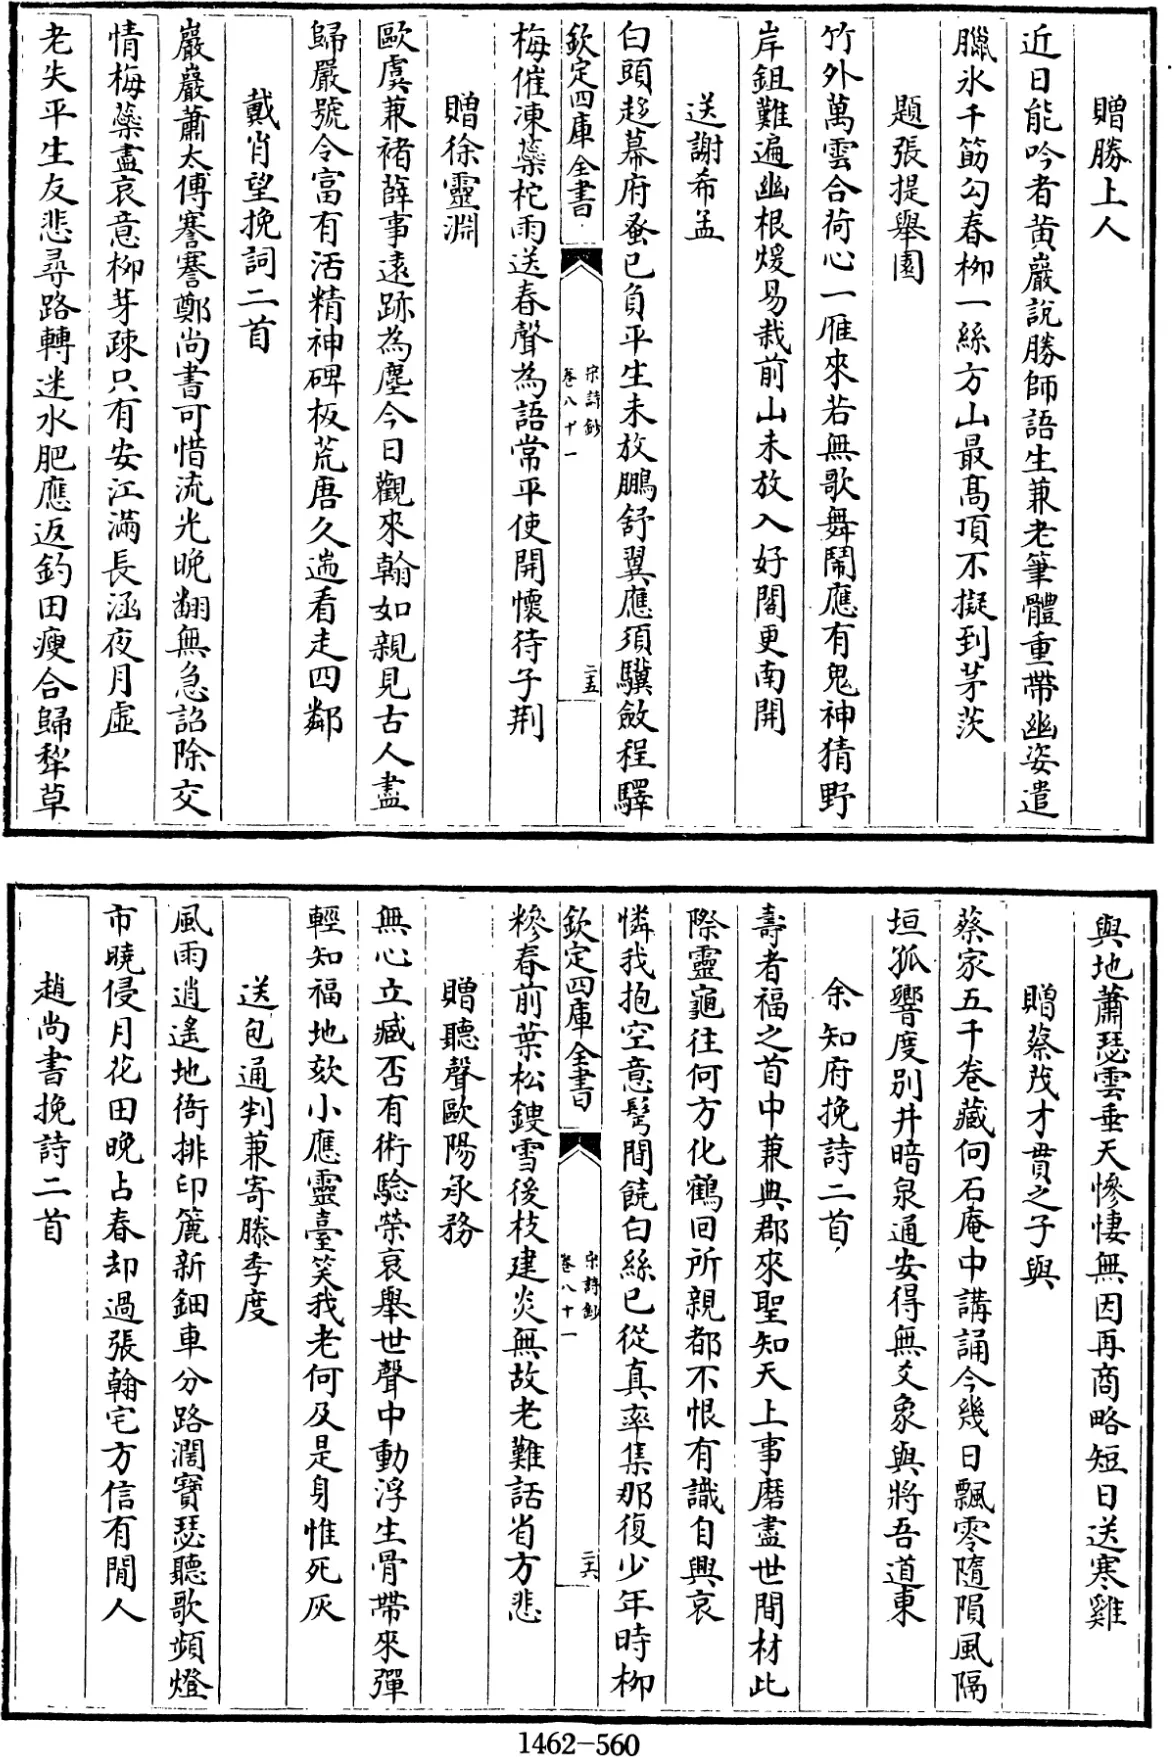 贈勝上人
近日能吟者黄巖說勝師語生兼老筆體重帶幽姿遣
臘氷千筯勾春柳一絲方山最髙頂不擬到茅茨
題張提舉園
竹外萬雲合荷心一雁來若無歌舞鬧應有鬼神猜野
岸鉏難遍幽根煖易栽前山未放入好閣更南開
送謝希孟
白頭趍幕府蚤已負平生未放鵬舒翼應須驥斂程驛
欽定四庫全書
宋詩鈔
卷八十一
二五
梅催凍蘂柁雨送春聲為語常平使開懷待子荆
贈徐靈淵
歐虞兼褚薛事逺跡為塵今日觀來翰如親見古人盡
歸嚴號令富有活精神碑板荒唐久遄看走四鄰
戴肖望挽詞二首
巖巖蕭太傅謇謇鄭尚書可惜流光晚翻無急詔除交
情梅蘂盡哀意柳芽疎只有安江滿長涵夜月虛
老失平生友悲尋路轉迷水肥應返釣田瘦合歸犂草
與地蕭瑟雲垂天慘悽無因再商略短日送寒雞
贈蔡茂才貫之子與
蔡家五千卷藏向石庵中講誦今幾日飄零隨隕風隔
垣孤響度别井暗泉通安得無爻象與將吾道東
余知府挽詩二首
壽者福之首中兼典郡來聖知天上事磨盡世間材此
際靈龜往何方化鶴回所親都不恨有識自興哀
憐我抱空意髩間饒白絲已從真率集那復少年時柳
欽定四庫全書
宋詩鈔
卷八十一
二六
糝春前葉松鏤雪後枝建炎無故老難話省方悲
贈聽聲歐陽承務
無心立臧否有術驗榮衰舉世聲中動浮生骨帶來彈
輕知福地欬小應靈臺笑我老何及是身惟死灰
送包通判兼寄滕季度
風雨逍遙地衙排印簏新鈿車分路濶寶瑟聽歌頻燈
市曉侵月花田晚占春却過張翰宅方信有閒人
趙尚書挽詩二首
1462-560